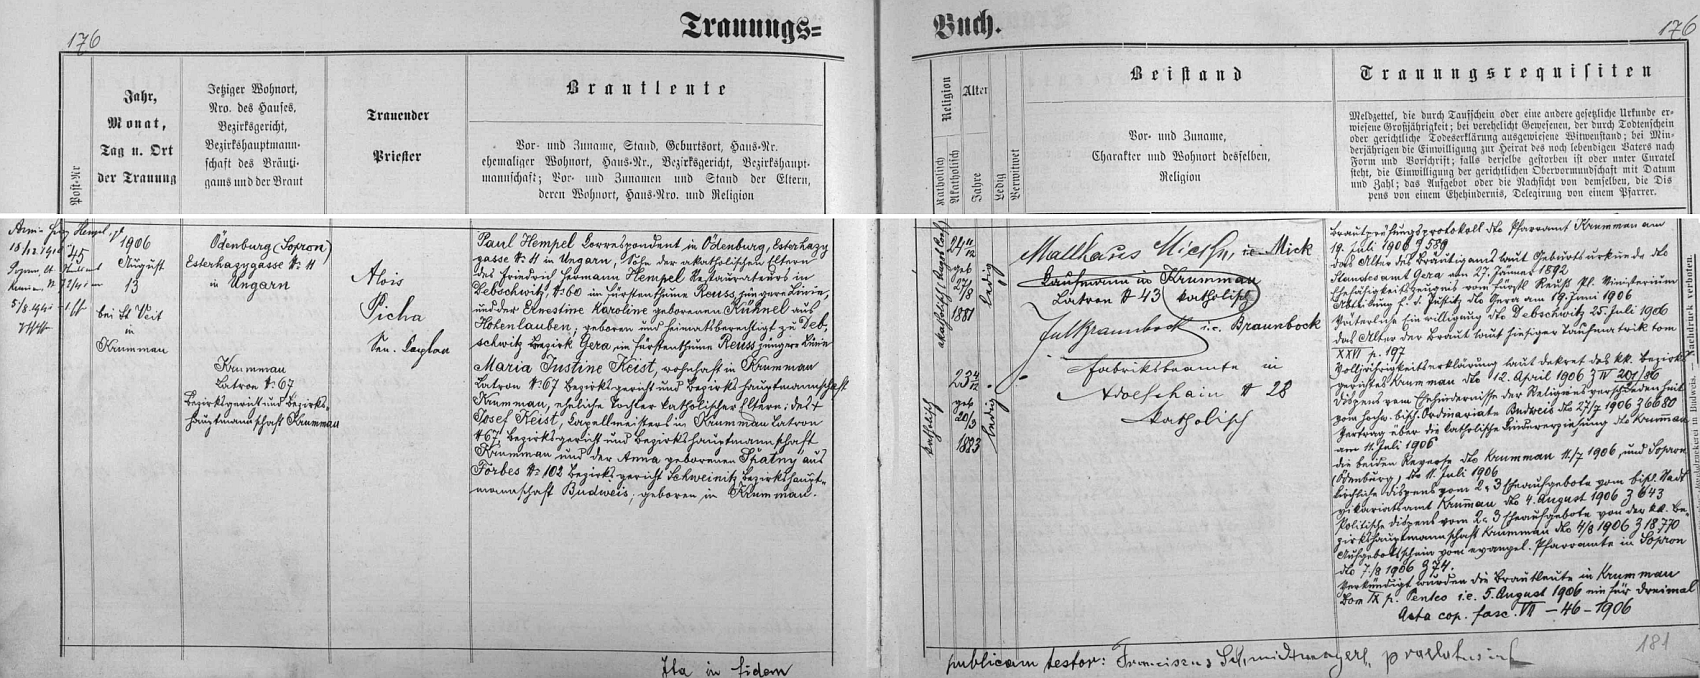 176
Trauungs=
Buch.
176
Post-Nr
Jahr,
Monat,
Tag u. Ort
der Trauung
Jetziger Wohnort,
Nro. des Hauses,
Bezirksgericht,
Bezirkshauptmann-
schaft des Bräuti-
gams und der Braut
Trauender
Priester
Brautleute
Vor- und Zuname, Stand, Geburtsort, Haus-Nr.
ehemaliger Wohnort, Haus-Nr., Bezirksgericht, Bezirkshaupt-
mannschaft; Vor- und Zunamen und Stand der Eltern,
deren Wohnort, Haus-Nro. und Religion
Religion
Katholisch
Akatholisch
Alter
Jahre
Ledig
Verwitwet
Beistand
Vor- und Zuname,
Charakter und Wohnort desselben,
Religion
Trauungsrequisiten
Meldzettel, die durch Taufschein oder eine andere gesetzliche Urkunde er-
wiesene Großjährigkeit; bei verehelicht Gewesenen, der durch Todtenschein
oder gerichtliche Todeserklärung ausgewiesene Witwenstand; bei Min-
derjährigen die Einwilligung zur Heirat des noch lebendigen Vaters nach
Form und Vorschrift; falls derselbe gestorben ist oder unter Curatel
steht, die Einwilligung der gerichtlichen Obervormundschaft mit Datum
und Zahl; das Aufgebot oder die Nachsicht von demselben, die Dis
pens von einem Ehehindernis, Delegirung von einem Pfarrer.
45
1906
August
13
bei St Veit
in
Krummau
Ödenburg (Sopron)
Esterhazygasse № 11
in Ungarn
Krummau
Latron № 67
Bezirksgericht und Bezirks-
hauptmannschaft Krummau
Alois
Picha
Sen. Caplan
Paul Hempel Correspondent in Ödenburg, Esterhazy
gasse № 11 in Ungarn, Sohn der akatholischen Eltern
des Friedrich Hermann Hempel Restaurateurs in
Debschwitz, № 60 im Fürstenthume Reuss jüngere Linie,
und der Ernestine Karoline geborenen Kühnel aus
Hohenleuben; geboren und heimatsberechtigt zu Deb-
schwitz Bezirk Gera, im Fürstenthume Reuss jüngere Linie
Maria Justine Keist, wohnhaft in Krummau
Latron № 67 Bezirksgericht und Bezirkshauptmannschaft
Krummau, eheliche Tochter katholischer Eltern: des †
Josef Keist, Capellmeisters in Krummau Latron
№ 67, Bezirksgericht und Bezirkshauptmannschaft
Krummau und der Anna geborenen Spatny aus
Forbes № 102 Bezirksgericht Schweinitz, Bezirkshaupt-
mannschaft Budweis, geboren in Krummau.
geb
27/8
1881
ledig
katholisch
geb
20/3
1883
ledig
i.e. Mick
Kaufmann in Krummau
Latron № 43 katholisch
i.e. Braunbock
Fabriksbeamte in
Adolfshain № 28
katholisch
Brautprüfungsprotokoll dto Pfarramt Krummau am
19. Juli 1906 Z 589
das Alter des Bräutigams laut Geburtsurkunde dto
Standesamt Gera am 27. Jänner 1892
Abtheilung f. d. Justiz dto Gera am 19. Juni 1906
Väterliche Einwilligung dto Debschwitz 25. Juli 1906
das Alter der Braut laut hiesiger Taufmatrik tom
XXVI p. 197
Volljährigkeitserklärung laut Dekret des kk. Bezirks-
gerichtes Krummau dto 12. April 1906
Dispens vom Ehehindernisse der Religionsverschiedenheit
vom hochw. bisch. Ordinariate Budweis dto 27/7 1906 Z 6680
Vertrag über die katholische Kindererziehung dto Krummau
am 11. Juli 1906
die beiden Reverse dto Krummau 11./7 1906, und Sopron
(Ödenburg), dto 11 Juli 1906
Kirchliche Dispens vom 2 u 3 Eheaufgebote vom bisch. Stadt
vikariatsamt Krummau dto 4. August 1906 Z 643
Politische Dispens vom 2 u 3 Eheaufgebote von der kk. Be-
zirkshauptmannschaft Krummau dto 4/8 1906 Z 18.770
Aufgebotsschein vom evangel. Pfarramte in Sopron
dto 7./8 1906 Z 74.
Verkündigt wurden die Brautleute in Krummau
Dom IX p. Pentec i.e. 5. August 1906 ein für dreimal
Acta cop. fasc. VII – 46 – 1906
181
Ita in fidem
publicam testor: Franciscus Schmidtmayer